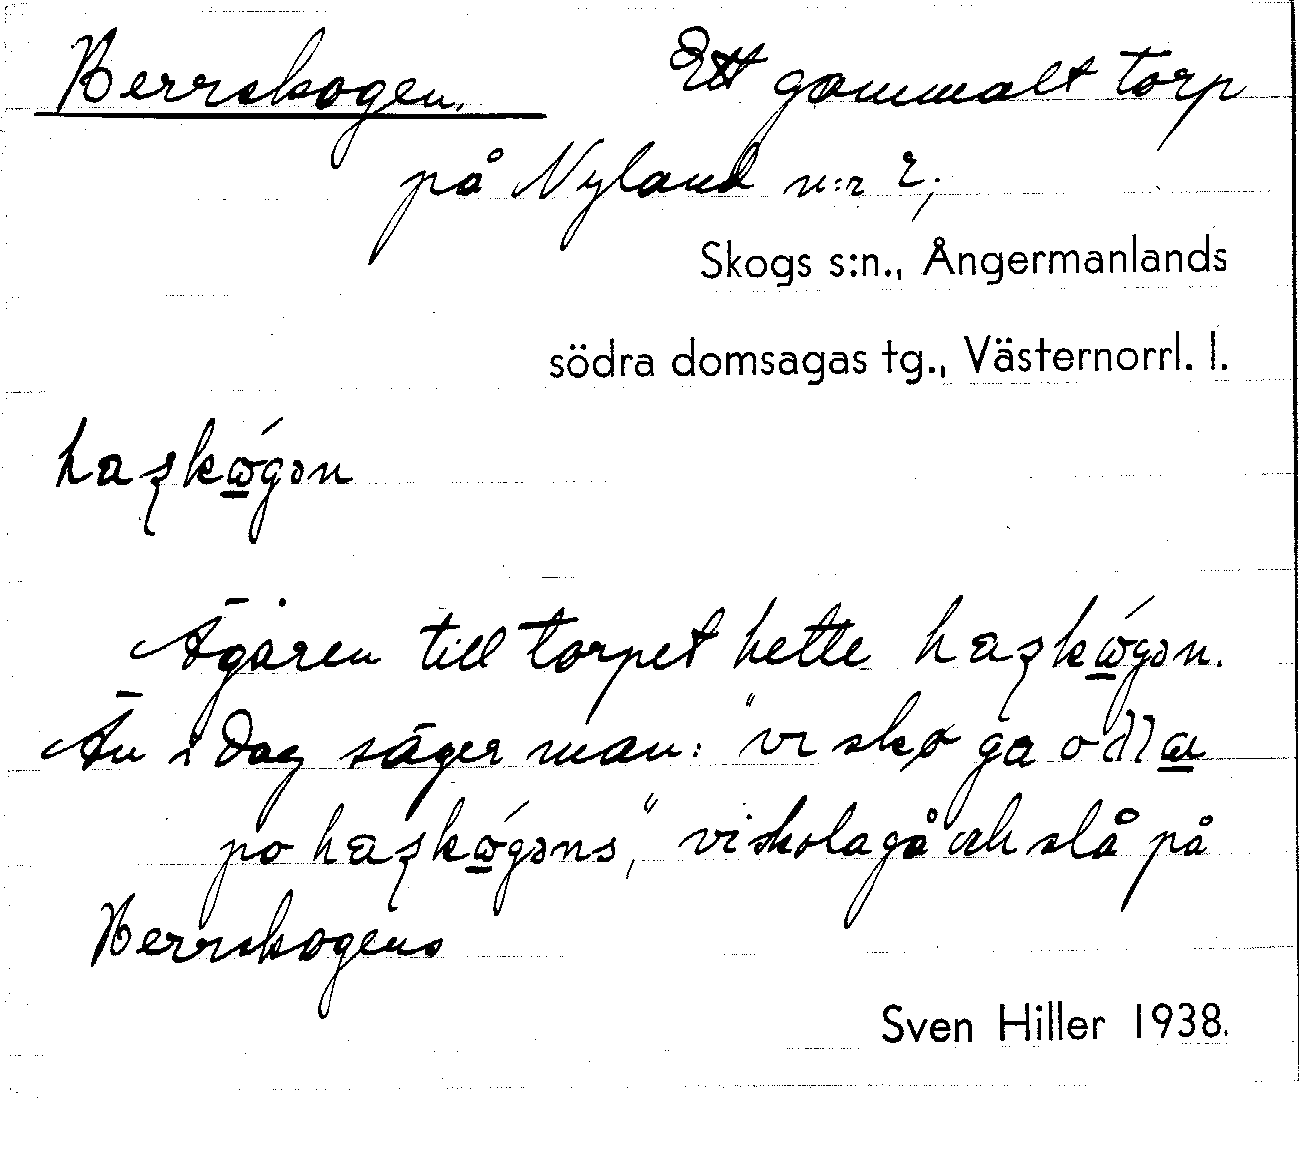 Herrskogen. Ett gammalt torp
på Nyland n:r 2;
Skogs s:n., Ångermanlands
södra domsagas tg., Västernorrl. l.
haʂkώ̲gən
Ägaren till torpet hette haʂkώ̲gən.
Än i dag säger man: "vi ska ga
po haʂkώ̲gəns," vi skola gå och slå på
Herrskogens
Sven Hiller 1938.